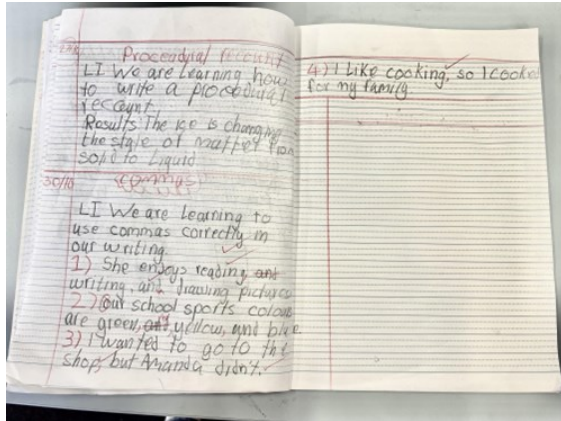 Procedural recount
LI We are learning how
to write a procedural
reccount.
Results: The ice is changing
the state of matter from
solid to Liquid.
30/10
commas
LI We are learning to
use commas correctly in
our writing.
1) She enjoys reading and
writing, and drawing pictures
2) Our school sports colours
are green, yellow, and blue
3) I wanted to go to the
shop, but Amanda didn't.
4) I Like cooking, so I cooked
for my family